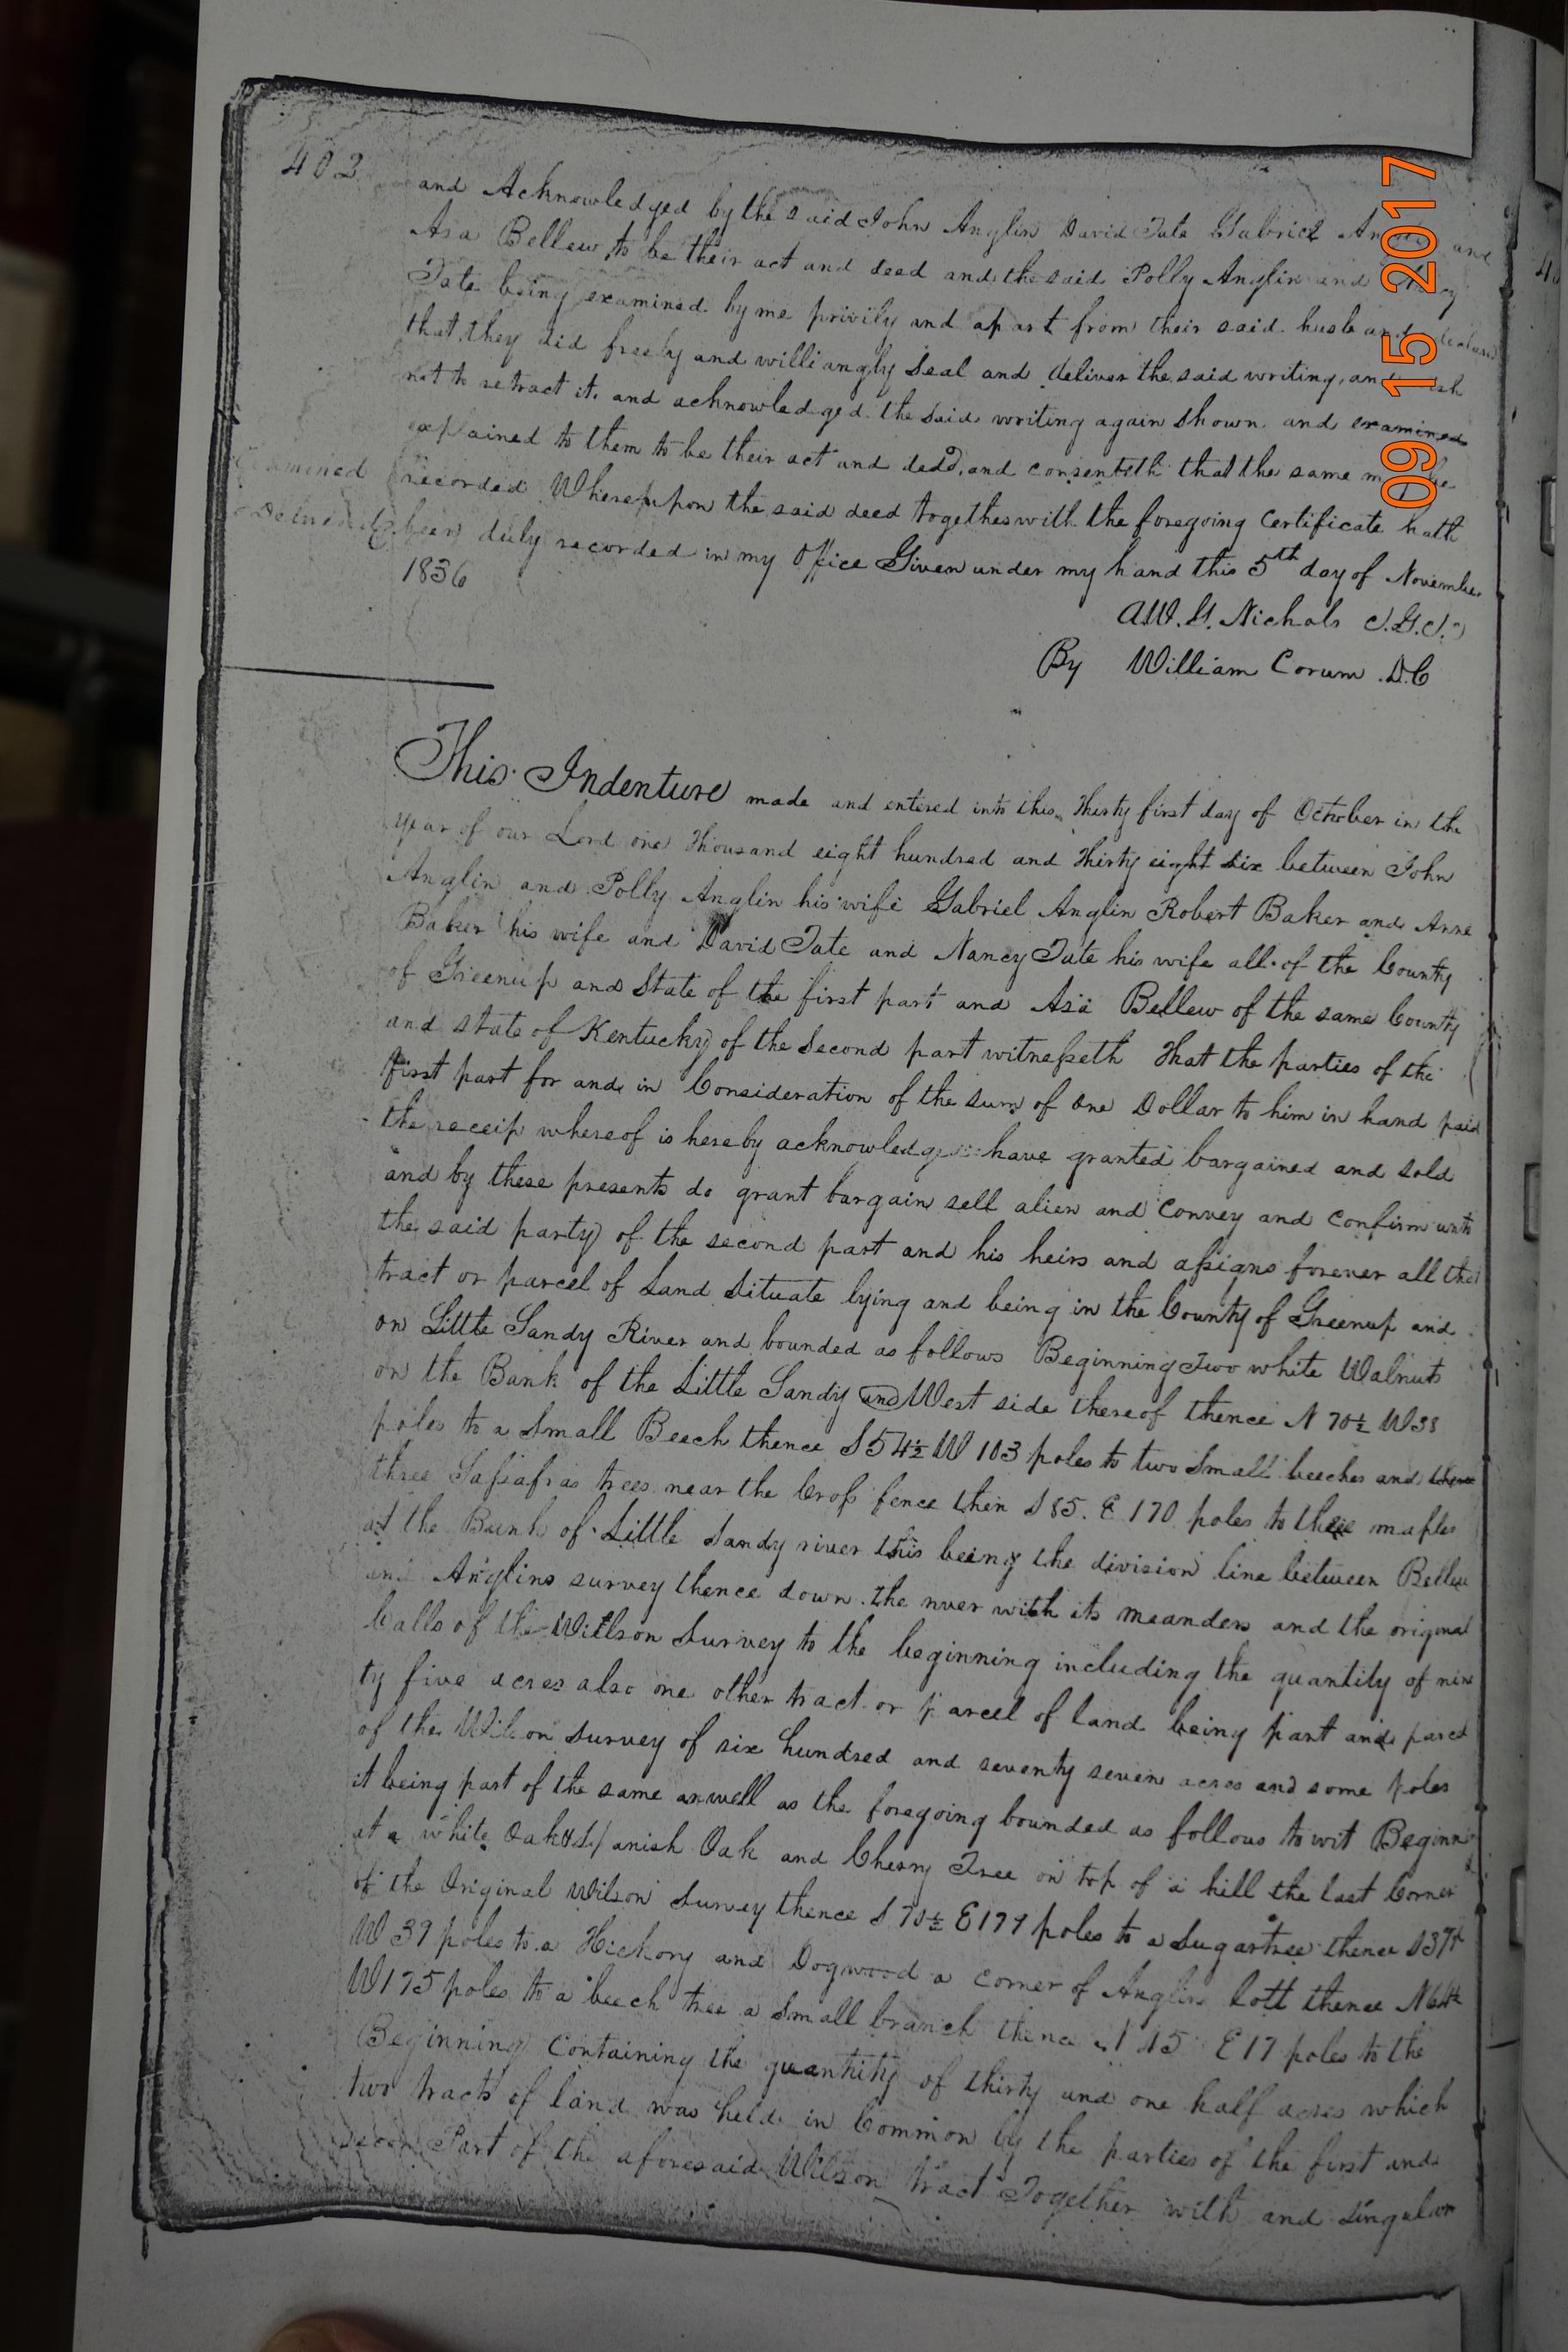 402
and Acknowledged by the said John Anglin David Tate Gabriel and
Asa Bellew to be their act and deed and the said Polly Anglin and
Tate being examined by me privily and apart from their said husband
that they did freely and williangly Seal and deliver the said writing, and
not to retract it, and acknowledged the said writing again shown and examined
explained to them to be their act and dedd, and consenteth that the same be
Examined recorded Whereupon the said deed together with the foregoing Certificate hath
been duly recorded in my Office Given under my hand this 5th day of November
1836
By William Corum D.C
This Indenture made and entered into this Thirty first day of October in the
year of our Lord one Thousand eight hundred and Thirty eight six between John
Anglin and Polly Anglin his wife Gabriel Anglin Robert Baker and Anne
Baker his wife and David Tate and Nancy Tate his wife all of the County
of Greenup and State of the first part and Asa Bellew of the same County
and state of Kentucky of the Second part witnesseth That the parties of the
first part for and in Consideration of the sum of one Dollar to him in hand paid
the receip whereof is hereby acknowledge have granted bargained and sold
and by these presents do grant bargain sell alien and Convey and Confirm unto
the said party of the second part and his heirs and assigns forever all that
tract or parcel of Land Situate lying and being in the County of Greenup and
on Little Sandy River and bounded as follows Beginning Two white Walnuts
on the Bank of the Little Sandy and West side thereof thence N 70½ W 38
poles to a Small Beech thence S 54½ W 103 poles to two Small beeches and
three Sassafras trees near the Cross fence then S 85. E 170 poles to three maples
at the Bank of Little Sandy river this being the division line between Bellew
and Anglins survey thence down the river with its meanders and the original
Calls of the Willson Survey to the beginning including the quantity of nine
ty five acres also one other tract or parcel of land being part and parcel
of the Wilson Survey of six hundred and seventy seven acres and some poles
it being part of the same as well as the foregoing bounded as follows to wit Beginning
at a white Oak & Spanish Oak and Cherry Tree on top of a hill the last Corner
of the Original Wilson Survey thence S 70½ E 177 poles to a Sugartree thence S
W 39 poles to a Hickory and Dogwood a corner of Anglins Lott thence
W 175 poles to a beech tree a Small branch thence E 17 poles to the
Beginning Containing the quantity of thirty and one half acres which
two tracts of land was held in Common by the parties of the first and
Part of the aforesaid Wilson tract Together with and singular
09 15 2017